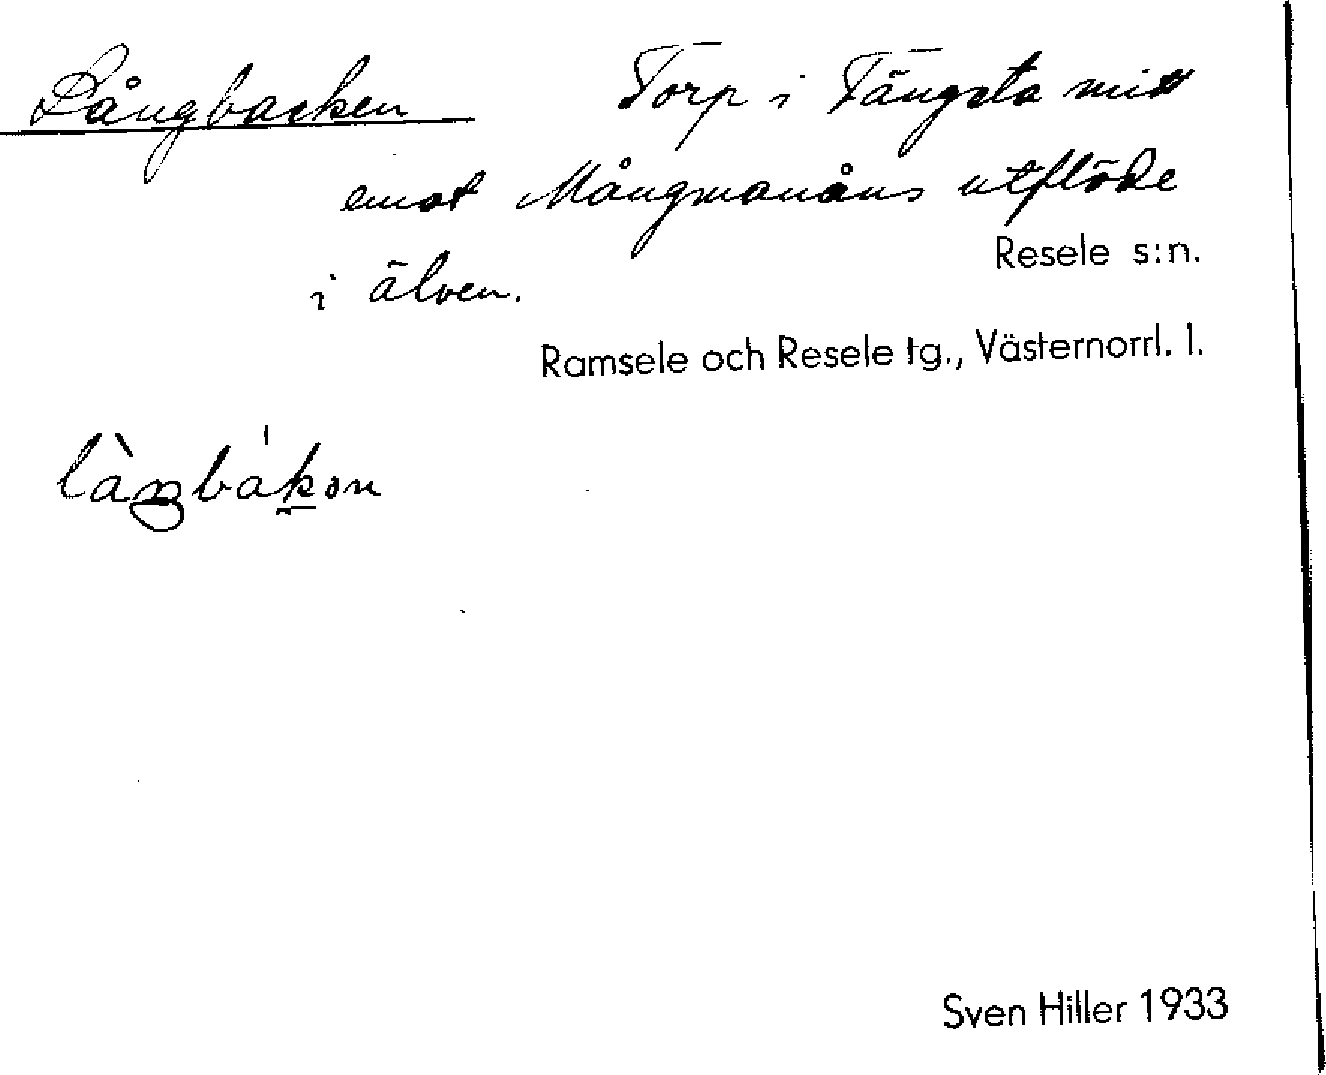 Långbacken Torp i Tängsta mitt
emot Mångmanåns utflöde
i älven.
Resele s:n.
Ramsele och Resele tg., Västernorrl. l.
Sven Hiller 1933